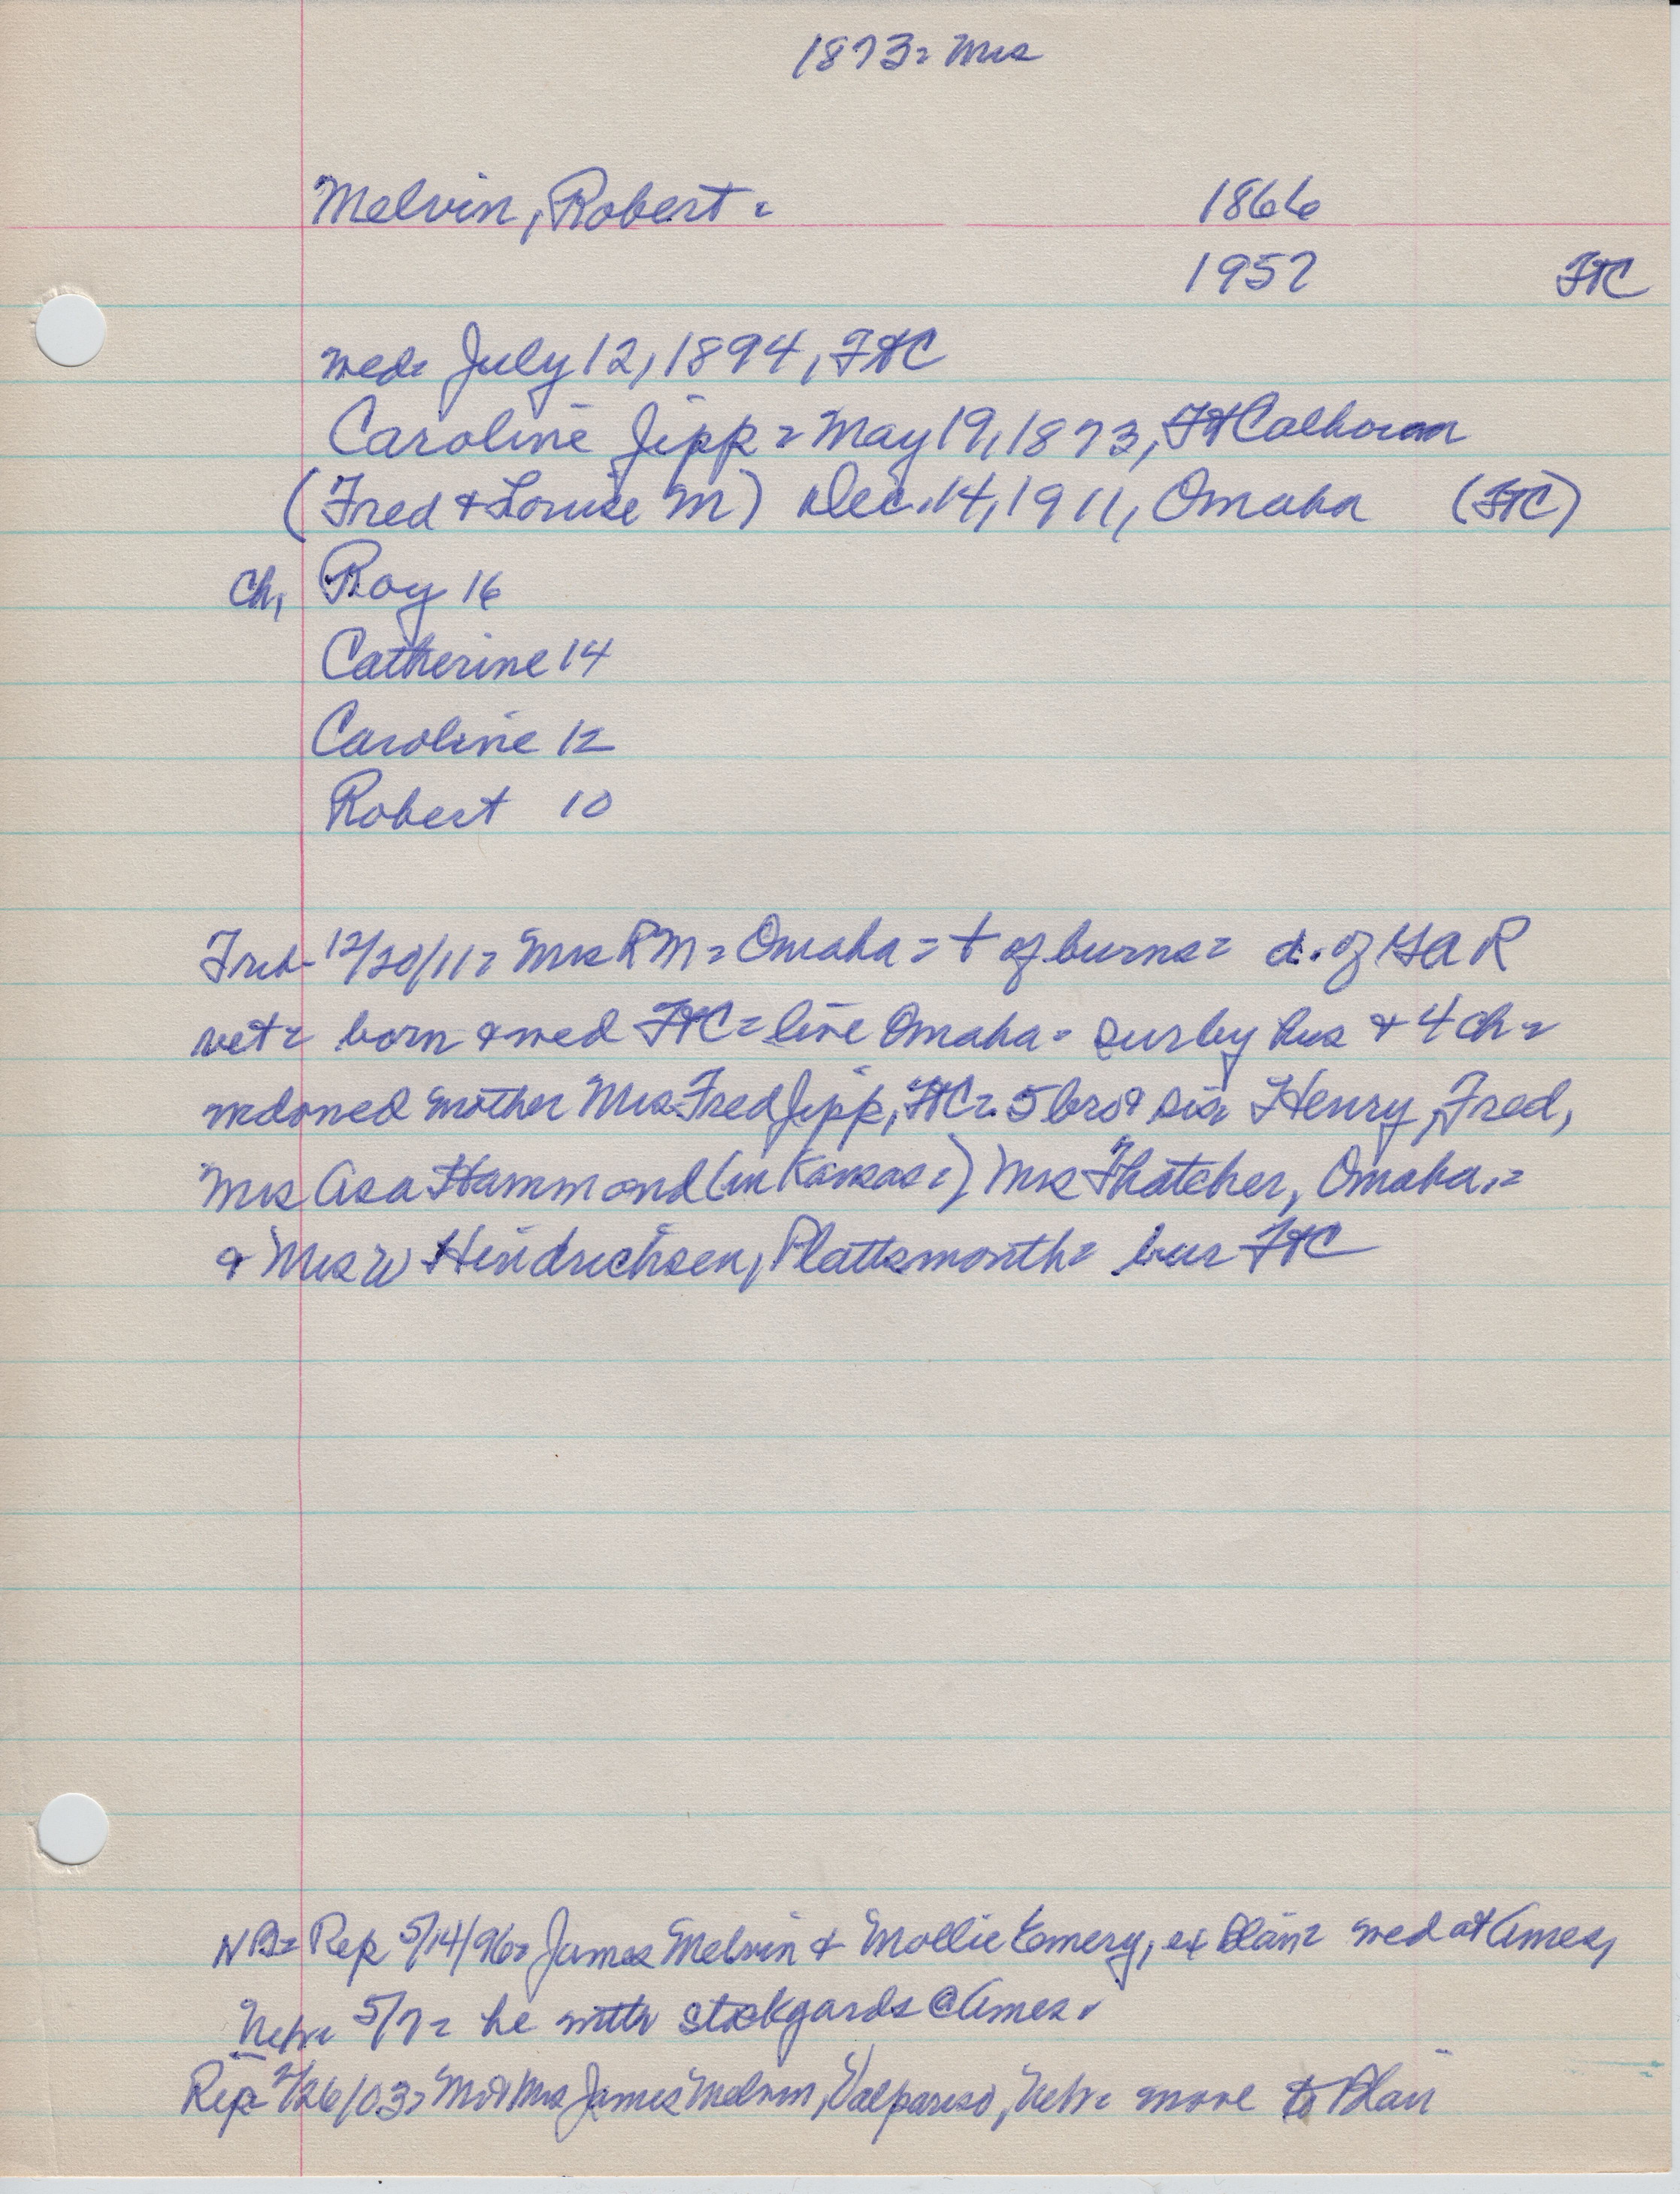 1873= Mrs
Melvin, Robert = 1866
1957 FtC
wed= July 12, 1894, FtC
Caroline Jipp = May 19, 1873, Ft Calhoun
(Fred & Louise M) Dec. 14, 1911, Omaha (FtC)
Ch, Roy 16
Catherine 14
Caroline 12
Robert 10
Trib- 12/20/11= Mrs R M = Omaha = † of burns= d. of GAR
vet= born & wed FtC = live Omaha= sur by hus & 4 ch=
widowed mother Mrs Fred Jipp, FtC= 5 bro & sis Henry, Fred,
Mrs Asa Hammond (in Kansas=) Mrs Thatcher, Omaha,=
& Mrs W Hindrichsen, Plattsmouth= bur FtC
NB= Rep 5/14/96= James Melvin & Mollie Emery, ex Blair= wed at Ames,
Nebr= 5/7= he with stockyards @ Ames.
Rep= 2/26/03= Mr & Mrs James Melvin, Valpariso, Nebr= move to Blair